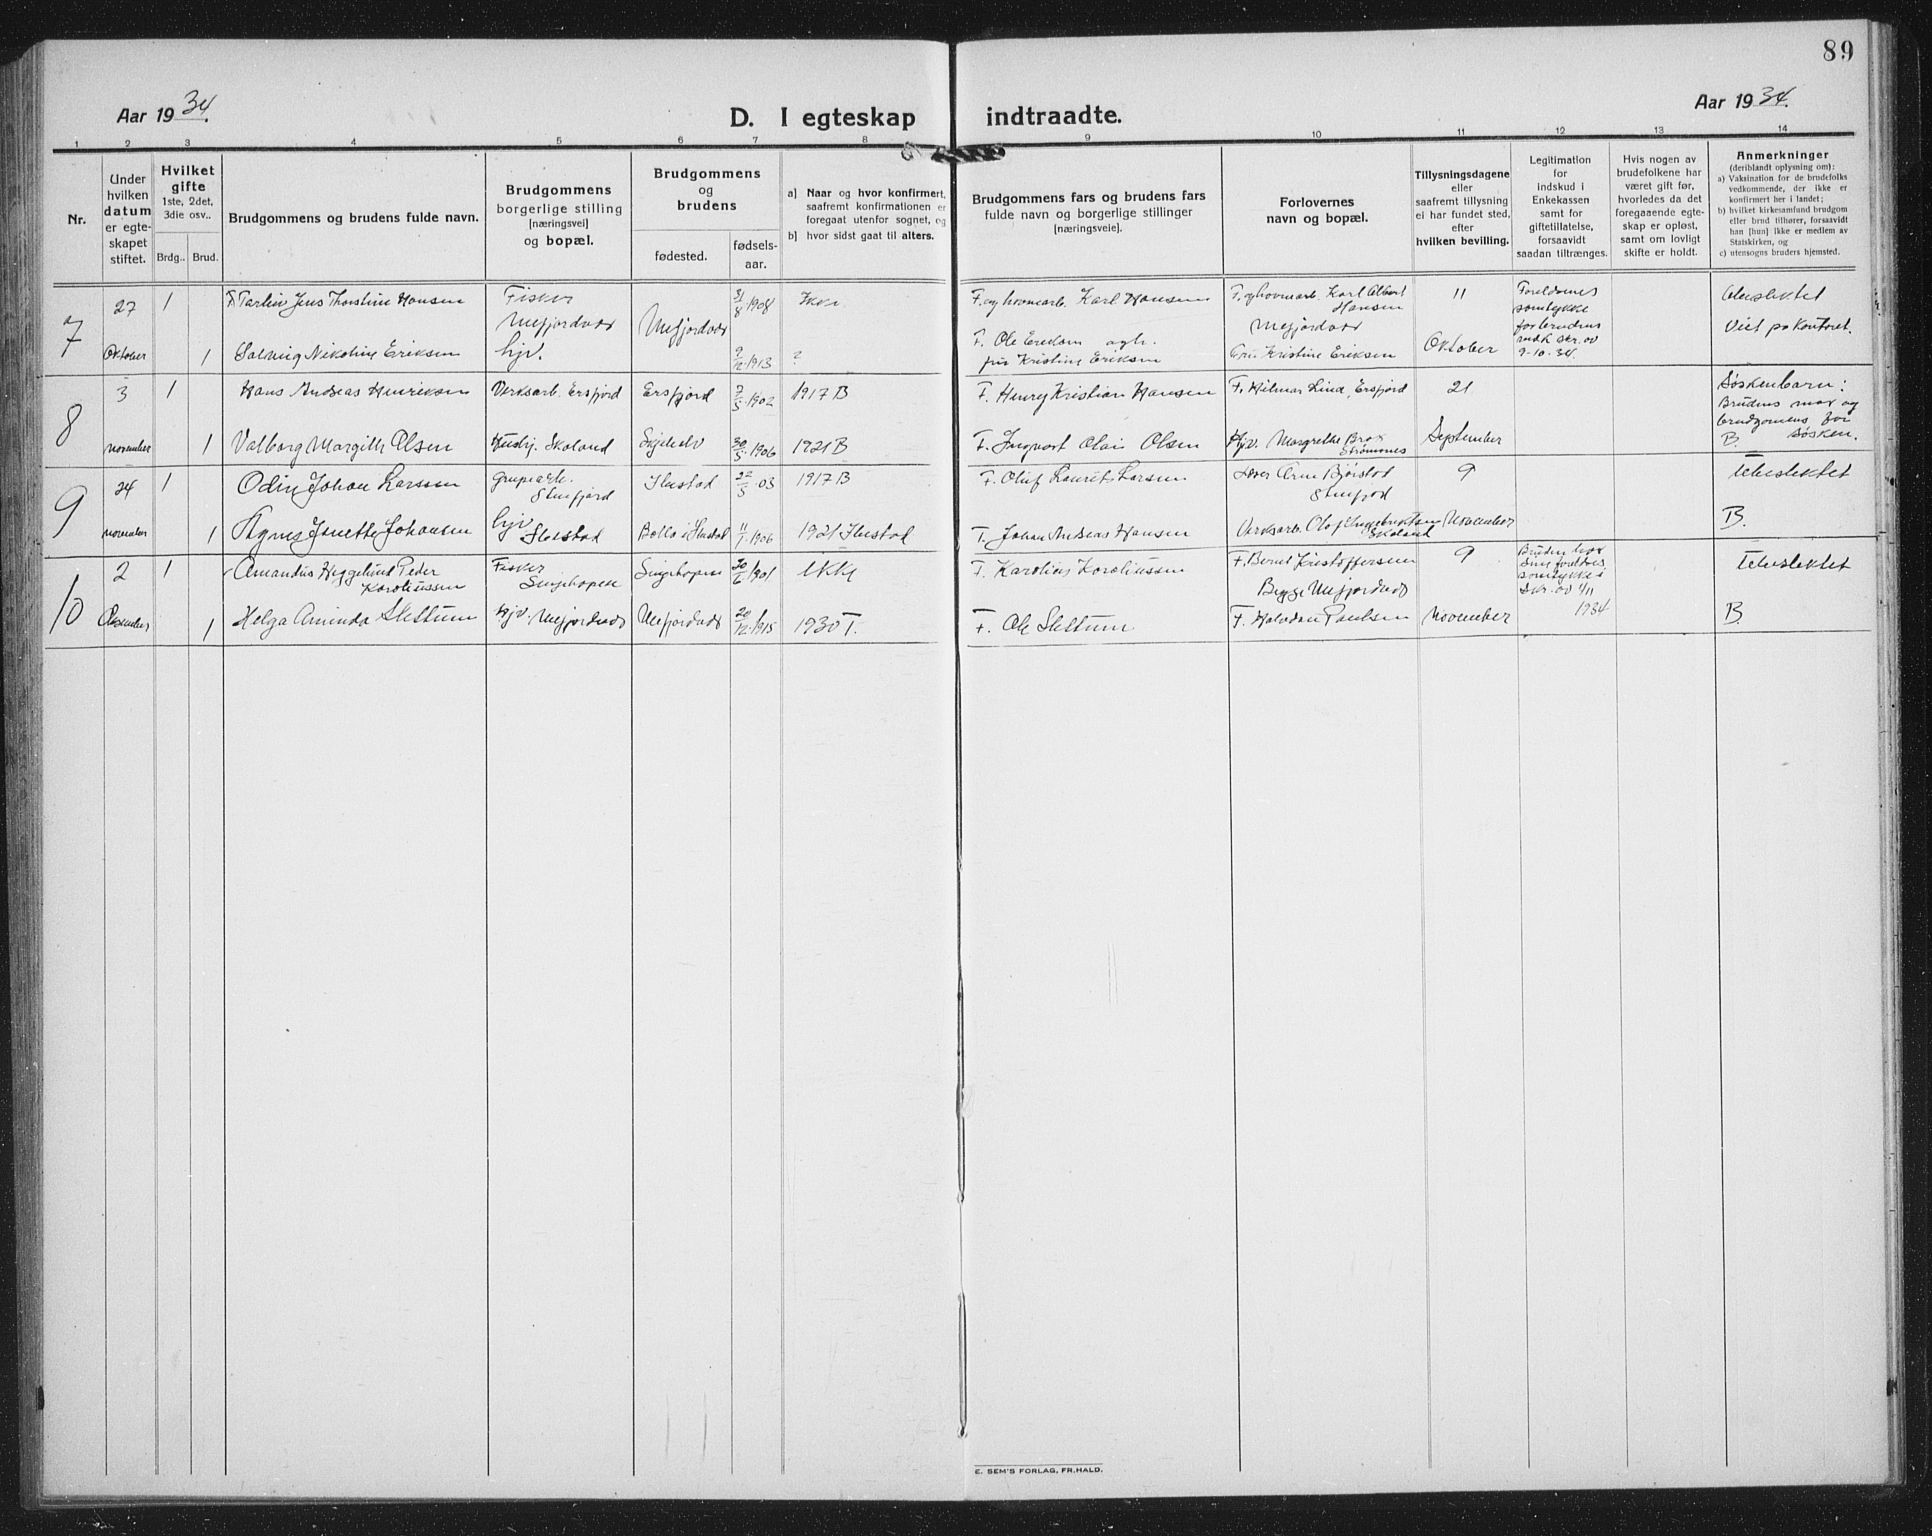 89
Aar 1934.
D. I egteskap indtraadte.
Aar 1934.
1 2 3 4 5 6 7 8 9 10 11 12 13 14
Nr.
Under hvilken datum er egteskapet stiftet.
Hvilket gifte
1ste, 2det, 3die osv..
Brdg.. Brud.
Brudgommens og brudens fulde navn.
Brudgommens borgerlige stilling [næringsvei] og bopæl.
Brudgommens og brudens
fødested.
fødsels-aar.
a] Naar og hvor konfirmert, saafremt konfirmationen er foregaat utenfor sognet, og
b] hvor sidst gaat til alters.
Brudgommens fars og brudens fars fulde navn og borgerlige stillinger [næringsveie].
Forlovernes navn og bopæl.
Tillysningsdagene eller saafremt tillysning ei har fundet sted, efter hvilken bevilling.
Legitimation for indskud i Enkekassen samt for giftetillatelse, forsaavidt saadan tiltrænges.
Hvis nogen av brudefolkene har været gift før, hvorledes da det foregaaende egteskap er opløst, samt om lovligt skifte er holdt.
Anmerkninger
(deriblandt oplysning om):
a) Vaksination for de brudefolks vedkommende, der ikke er konfirmert her i landet;
b) hvilket kirkesamfund brudgom eller brud tilhører, forsaavidt han [hun] ikke er medlem av Statskirken, og
c) utensogns bruders hjemsted.
7
27 Oktober
1
Jens Thorstine Hansen
Fisker Mefjordvær
Mefjordvær
31/8 1908
Karl Hansen
Karl Albert Hansen
Mefjordvær
11 Oktober
Foreldrenes samtykke for brudens
9-10-34.
Viet på kontoret.
1
Solveig Nikoline Eriksen
hjv.
9/12 1913
?
F. Ole Eriksen
fru Kristine Eriksen
Fru Kristine Eriksen
8
3 november
1
Hans Andreas Henriksen
Verksarb. Ersfjord
Ersfjord
2/5 1902
1917 B
F. Henry Kristian Hansen
F. Hilmar Lind, Ersfjord
21 September
Søskenbarn:
Brudens mor og
brudgomens far
søsken.
B.
1
Valborg Margith Olsen
Hushj. Skaland
30/5 1906
1921 B
F. Ingvart Olai Olsen
Hjv. Margrethe Brox
Strømsnes
9
24 november
1
Odin Johan Larssen
22/5 03
1917 B
F. Oluf Laurits Larsen
9 November
Ubeslektet
B.
1
Agnes Jenette Johansen
hjv
11/1 1906
1921
F. Johan Andreas Hansen
Skaland
10
2 Desember
1
Amandus Heggelund Peder
Karoliussen
Fisker
Senjehopen
Senjehopen
20/6 1901
F. Karolius Karoliussen
F. Bernt Kristoffersen
Begge Mefjordvær
9 November
Bruden har
sine foreldres
samtykke i
skr. av 1/11
1934
Ubeslektet
B.
1
Helga Aminda Slettum
Hjv. Mefjordvær
Mefjordvær
20/12 1915
1930 T.
F. Ole Slettum
F. Halvdan Paulsen
E. SEM'S FORLAG, FR.HALD.